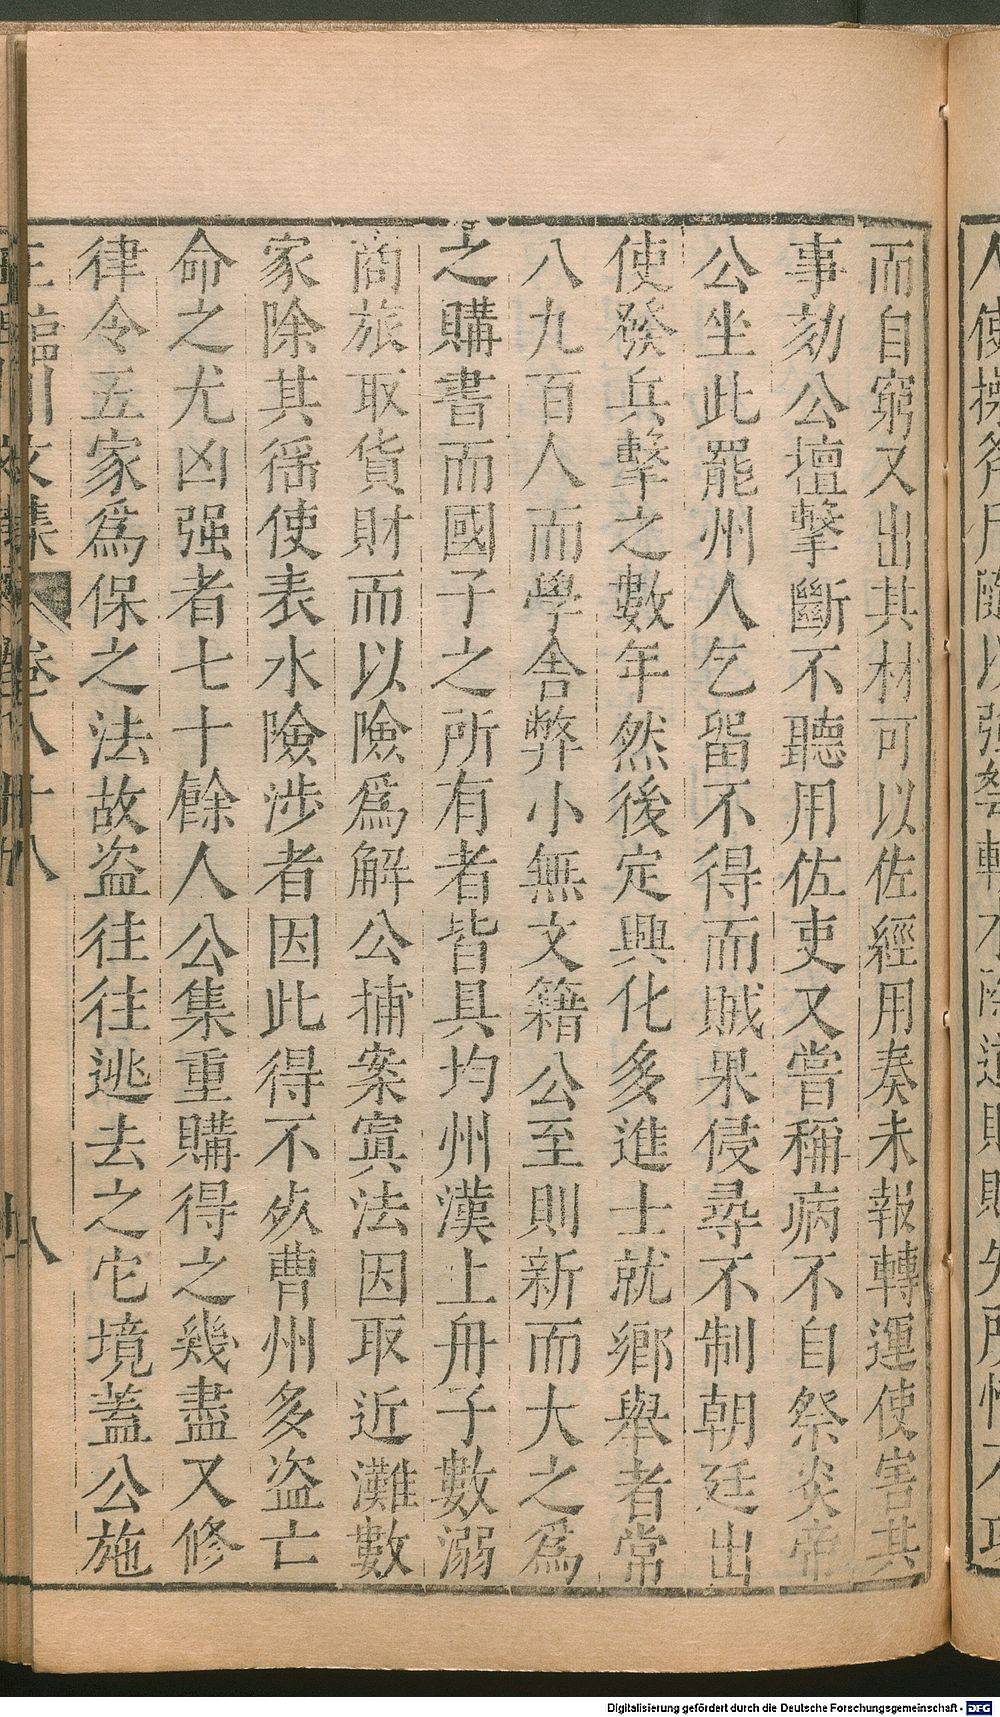 而自窮又出其材可以佐經用奏未報轉運使害其
事劾公壇擊斷不聽用佐吏又嘗稱病不自祭炎帝
公坐此罷州人乞留不得而賊果侵尋不制朝廷出
使發兵擊之數年然後定興化多進士就鄉舉者常
八九百人而學舍弊小無文籍公至則新而大之爲
之購書而國子之所有者皆具均州漢上舟子數溺
商旅取貨財而以險爲解公捕案寘法因取近灘數
家除其徭使表水險涉者因此得不死曹州多盜亡
命之尤凶强者七十餘人公集重購得之幾盡又修
律令五家爲保之法故盜往往逃去之它境蓋公施
王臨川文集 卷八十八 八
Digitalisierung gefördert durch die Deutsche Forschungsgemeinschaft - DFG